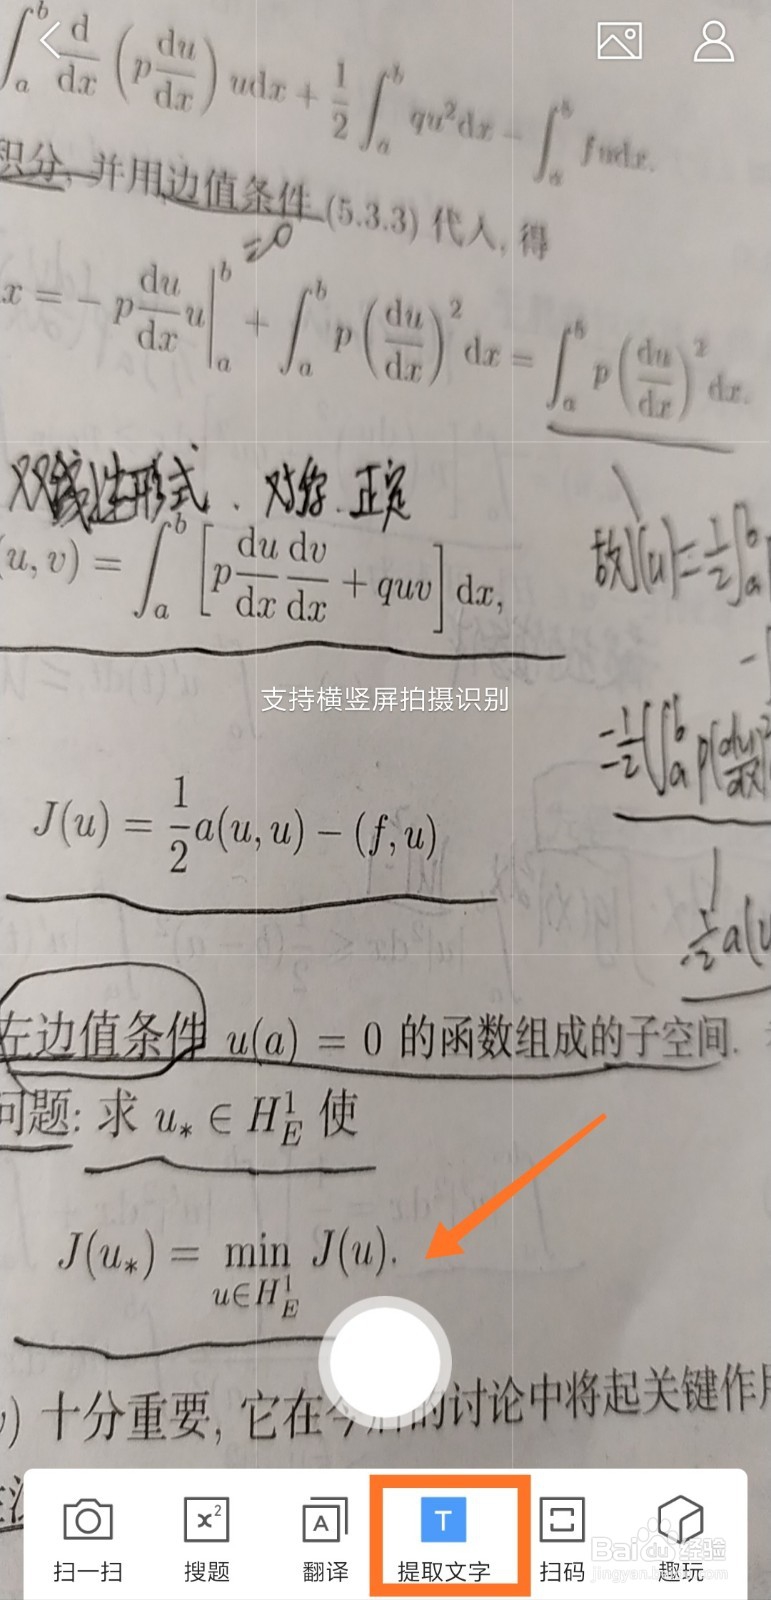 ∫_a^b d/dx (p du/dx) udx + 1/2 ∫_a^b qu²dx − ∫_a^b fudx.
积分, 并用边值条件 (5.3.3) 代入, 得
=0
x = − p du/dx u |_a^b + ∫_a^b p (du/dx)² dx = ∫_a^b p (du/dx)² dx.
双线性形式、对称、正定
(u, v) = ∫_a^b [p du/dx dv/dx + quv] dx,
故J(u)=½∫_a^b
支持横竖屏拍摄识别
=½(∫_a^b p(du/dx)²
J(u) = 1/2 a(u, u) − (f, u)
½a(u
左边值条件 u(a) = 0 的函数组成的子空间.
问题: 求 u_* ∈ H_E^1 使
J(u_*) = min_{u∈H_E^1} J(u).
) 十分重要, 它在今后的讨论中将起关键作用
扫一扫 搜题 翻译 提取文字 扫码 趣玩
Baidu经验
jingyan.baidu.com